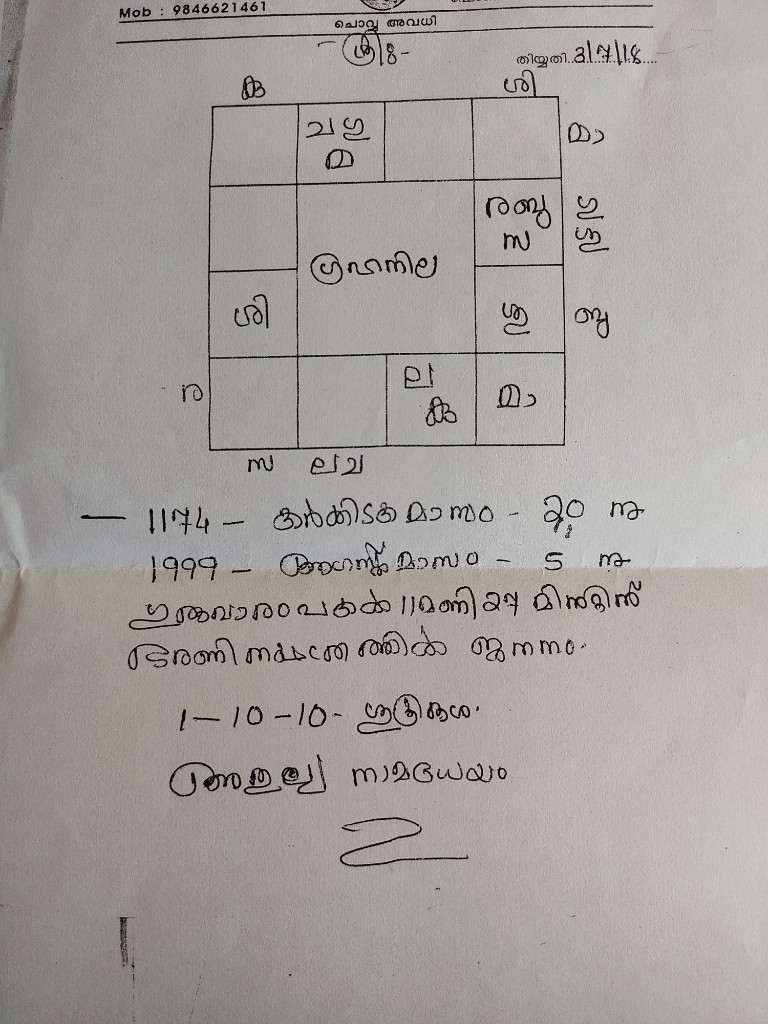 Mob : 9846621461
ചൊവ്വ അവധി
-ശ്രീഃ-
തിയ്യതി 3/7/18
കു ശി
ച ഗു മാ
മ
ര ബു ഗു
സ ശു
ഗ്രഹനില
ശി ശു ബു
ല
ര കു മാ
സ ല ച
— 1174 – കർക്കിടക മാസം - 20 നു
1999 – ആഗസ്റ്റ് മാസം - 5 നു
ഗുരുവാരം പകൽ 11 മണി 27 മിനിറ്റിന്
ഭരണി നക്ഷത്രത്തിൽ ജനനം.
1 — 10 – 10 - ശുക്രദശ.
നാമധേയം